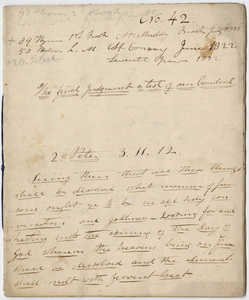 No. 42.
+ 39 Hymn 1st Book
50 L. M. Conway June 1822
Leverett June 1822
The final Judgment a test of our Conduct.
2d Peter 3. 11. 12.
Seeing then that all these things
shall be dissolved what manner of per
sons ought ye to be in all holy con
versation and godliness – Looking for and
hasting unto the coming of the day of
God wherein the heavens being on fire
shall be dissolved and the elements
shall melt with fervent heat